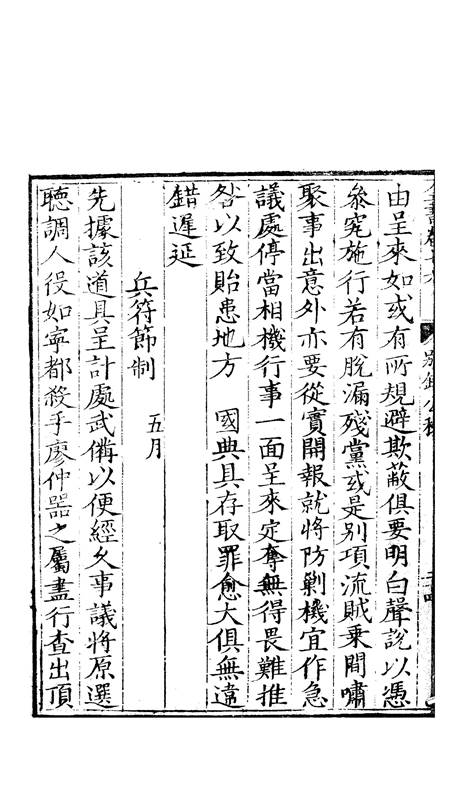 由呈來如或有所規避欺蔽俱要明白聲說以憑
叅究施行若有脫漏殘黨或是別項流賊乗間嘯
聚事出意外亦要從實開報就將防剿機宜作急
議處停當相機行事一面呈來定奪無得畏難推
咎以致貽患地方　國典具存取罪愈大俱無遠
錯遲延
兵符節制　五月
先據該道具呈計處武備以便經久事議將原選
聽調人役如寧都殺手廖仲器之屬盡行查出頂